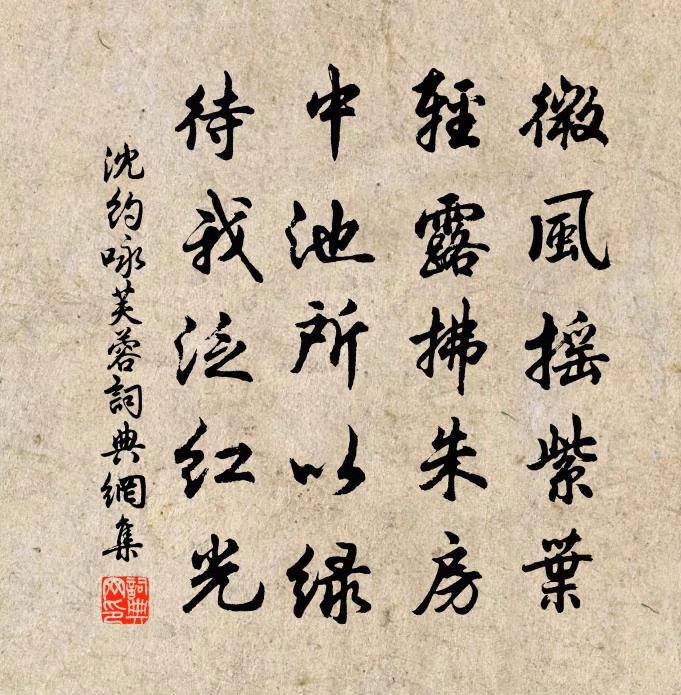 微風摇紫葉
輕露拂朱房
中池所以绿
待我泛紅光
沈約咏芙蓉詞典網集
詞典網印